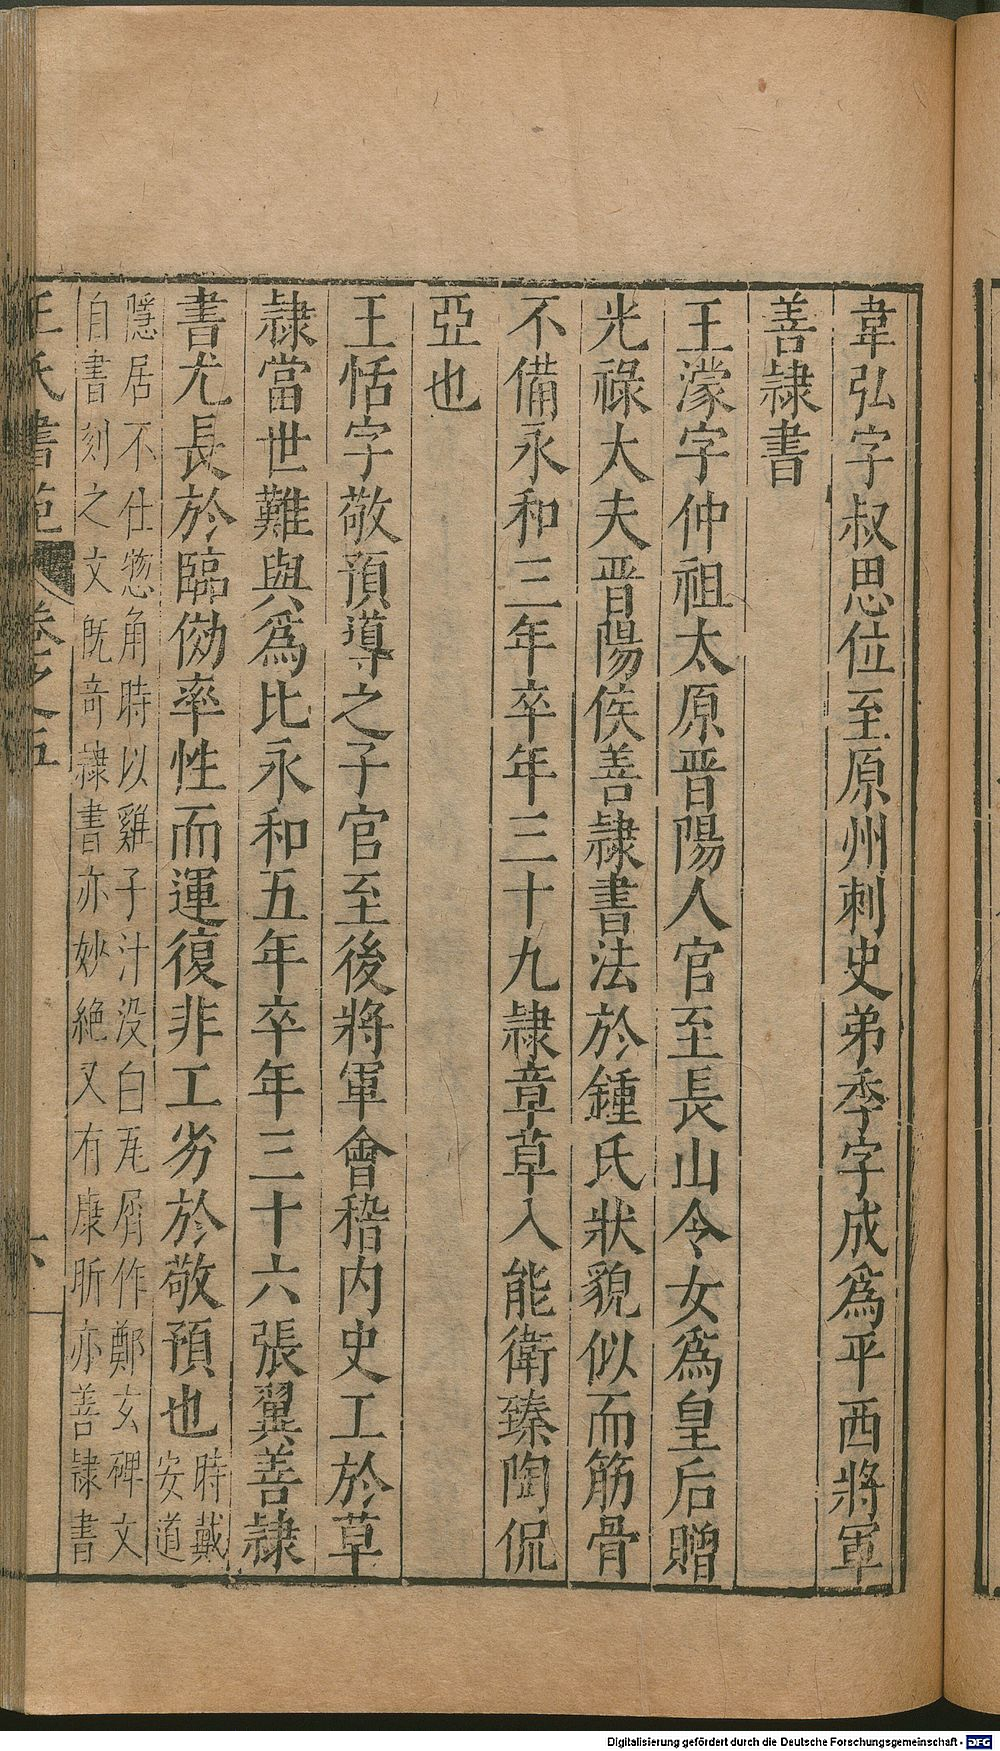 韋弘字叔思位至原州刺史弟季字成爲平西將軍
善隷書
王濛字仲祖太原晋陽人官至長山令女爲皇后贈
光祿大夫晋陽侯善隷書法於鍾氏狀貌似而筋骨
不備永和三年卒年三十九隷章草入能衛臻陶侃
亞也
王恬字敬預導之子官至後將軍會稽内史工於草
隷當世難與爲比永和五年卒年三十六張翼善隷
書尤長於臨倣率性而運復非工劣於敬預也時戴安道
隱居不仕惣角時以雞子汁没白瓦屑作鄭玄碑文
自書刻之文既奇隷書亦妙絶又有康昕亦善隷書
王氏書苑 卷之五 六
Digitalisierung gefördert durch die Deutsche Forschungsgemeinschaft - DFG